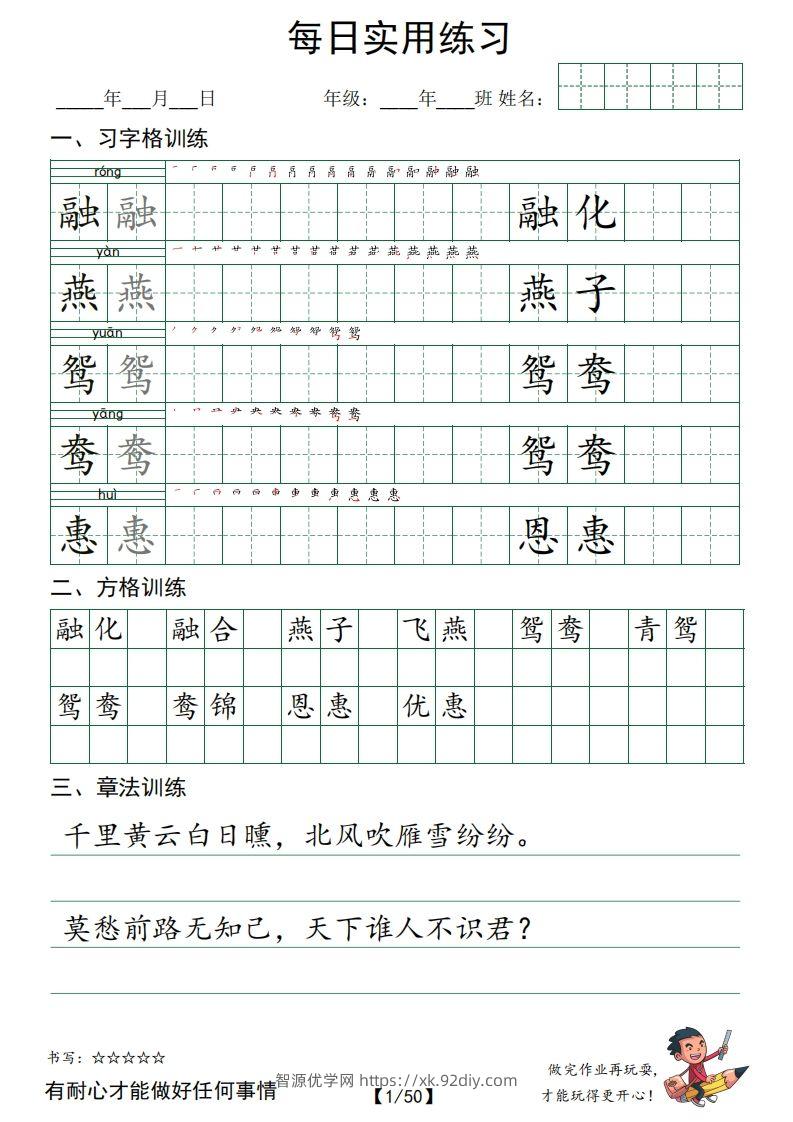 每日实用练习
_____年___月___日 年级：____年____班 姓名：
一、习字格训练
róng
融 融 融 化
yàn
燕 燕 燕 子
yuān
鸳 鸳 鸳 鸯
yāng
鸯 鸯 鸳 鸯
huì
惠 惠 恩 惠
二、方格训练
融 化 融 合 燕 子 飞 燕 鸳 鸯 青 鸳
鸳 鸯 鸯 锦 恩 惠 优 惠
三、章法训练
千里黄云白日曛，北风吹雁雪纷纷。
莫愁前路无知己，天下谁人不识君？
书写：☆☆☆☆☆
做完作业再玩耍，
才能玩得更开心！
有耐心才能做好任何事情
智源优学网 https://xk.92diy.com
【1/50】